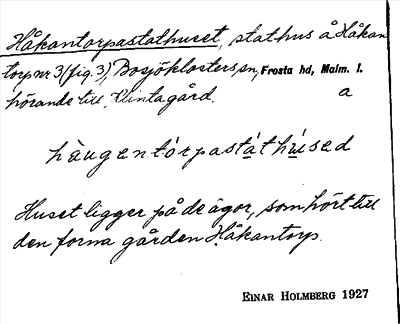 Håkantorpastathuset, stathus å Håkan
torp nr 3 (fig. 3), Bosjöklosters sn, Frosta hd, Malm. l.
hörande till Klintagård. a
hàugentórpastáthúsed
Huset ligger på de ägor, som hört till
den forna gården Håkantorp.
EINAR HOLMBERG 1927